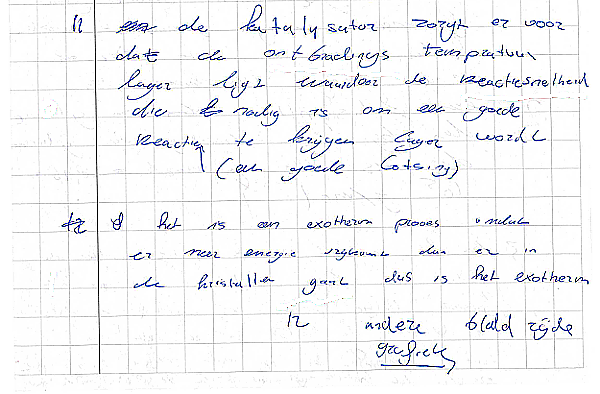 11 de katalysator zorgt er voor
dat de ontbradings tempratuur
lager ligt waardoor de reactiesnelheid
die nodig is om een goede
reactie te krijgen lager wordt
(een goede botsing)
12 het is een exotherm proces omdat
er meer energie vrijkomt dan er in
de kristallen gaat dus is het exotherm
12 andere blad zijde
grafiek